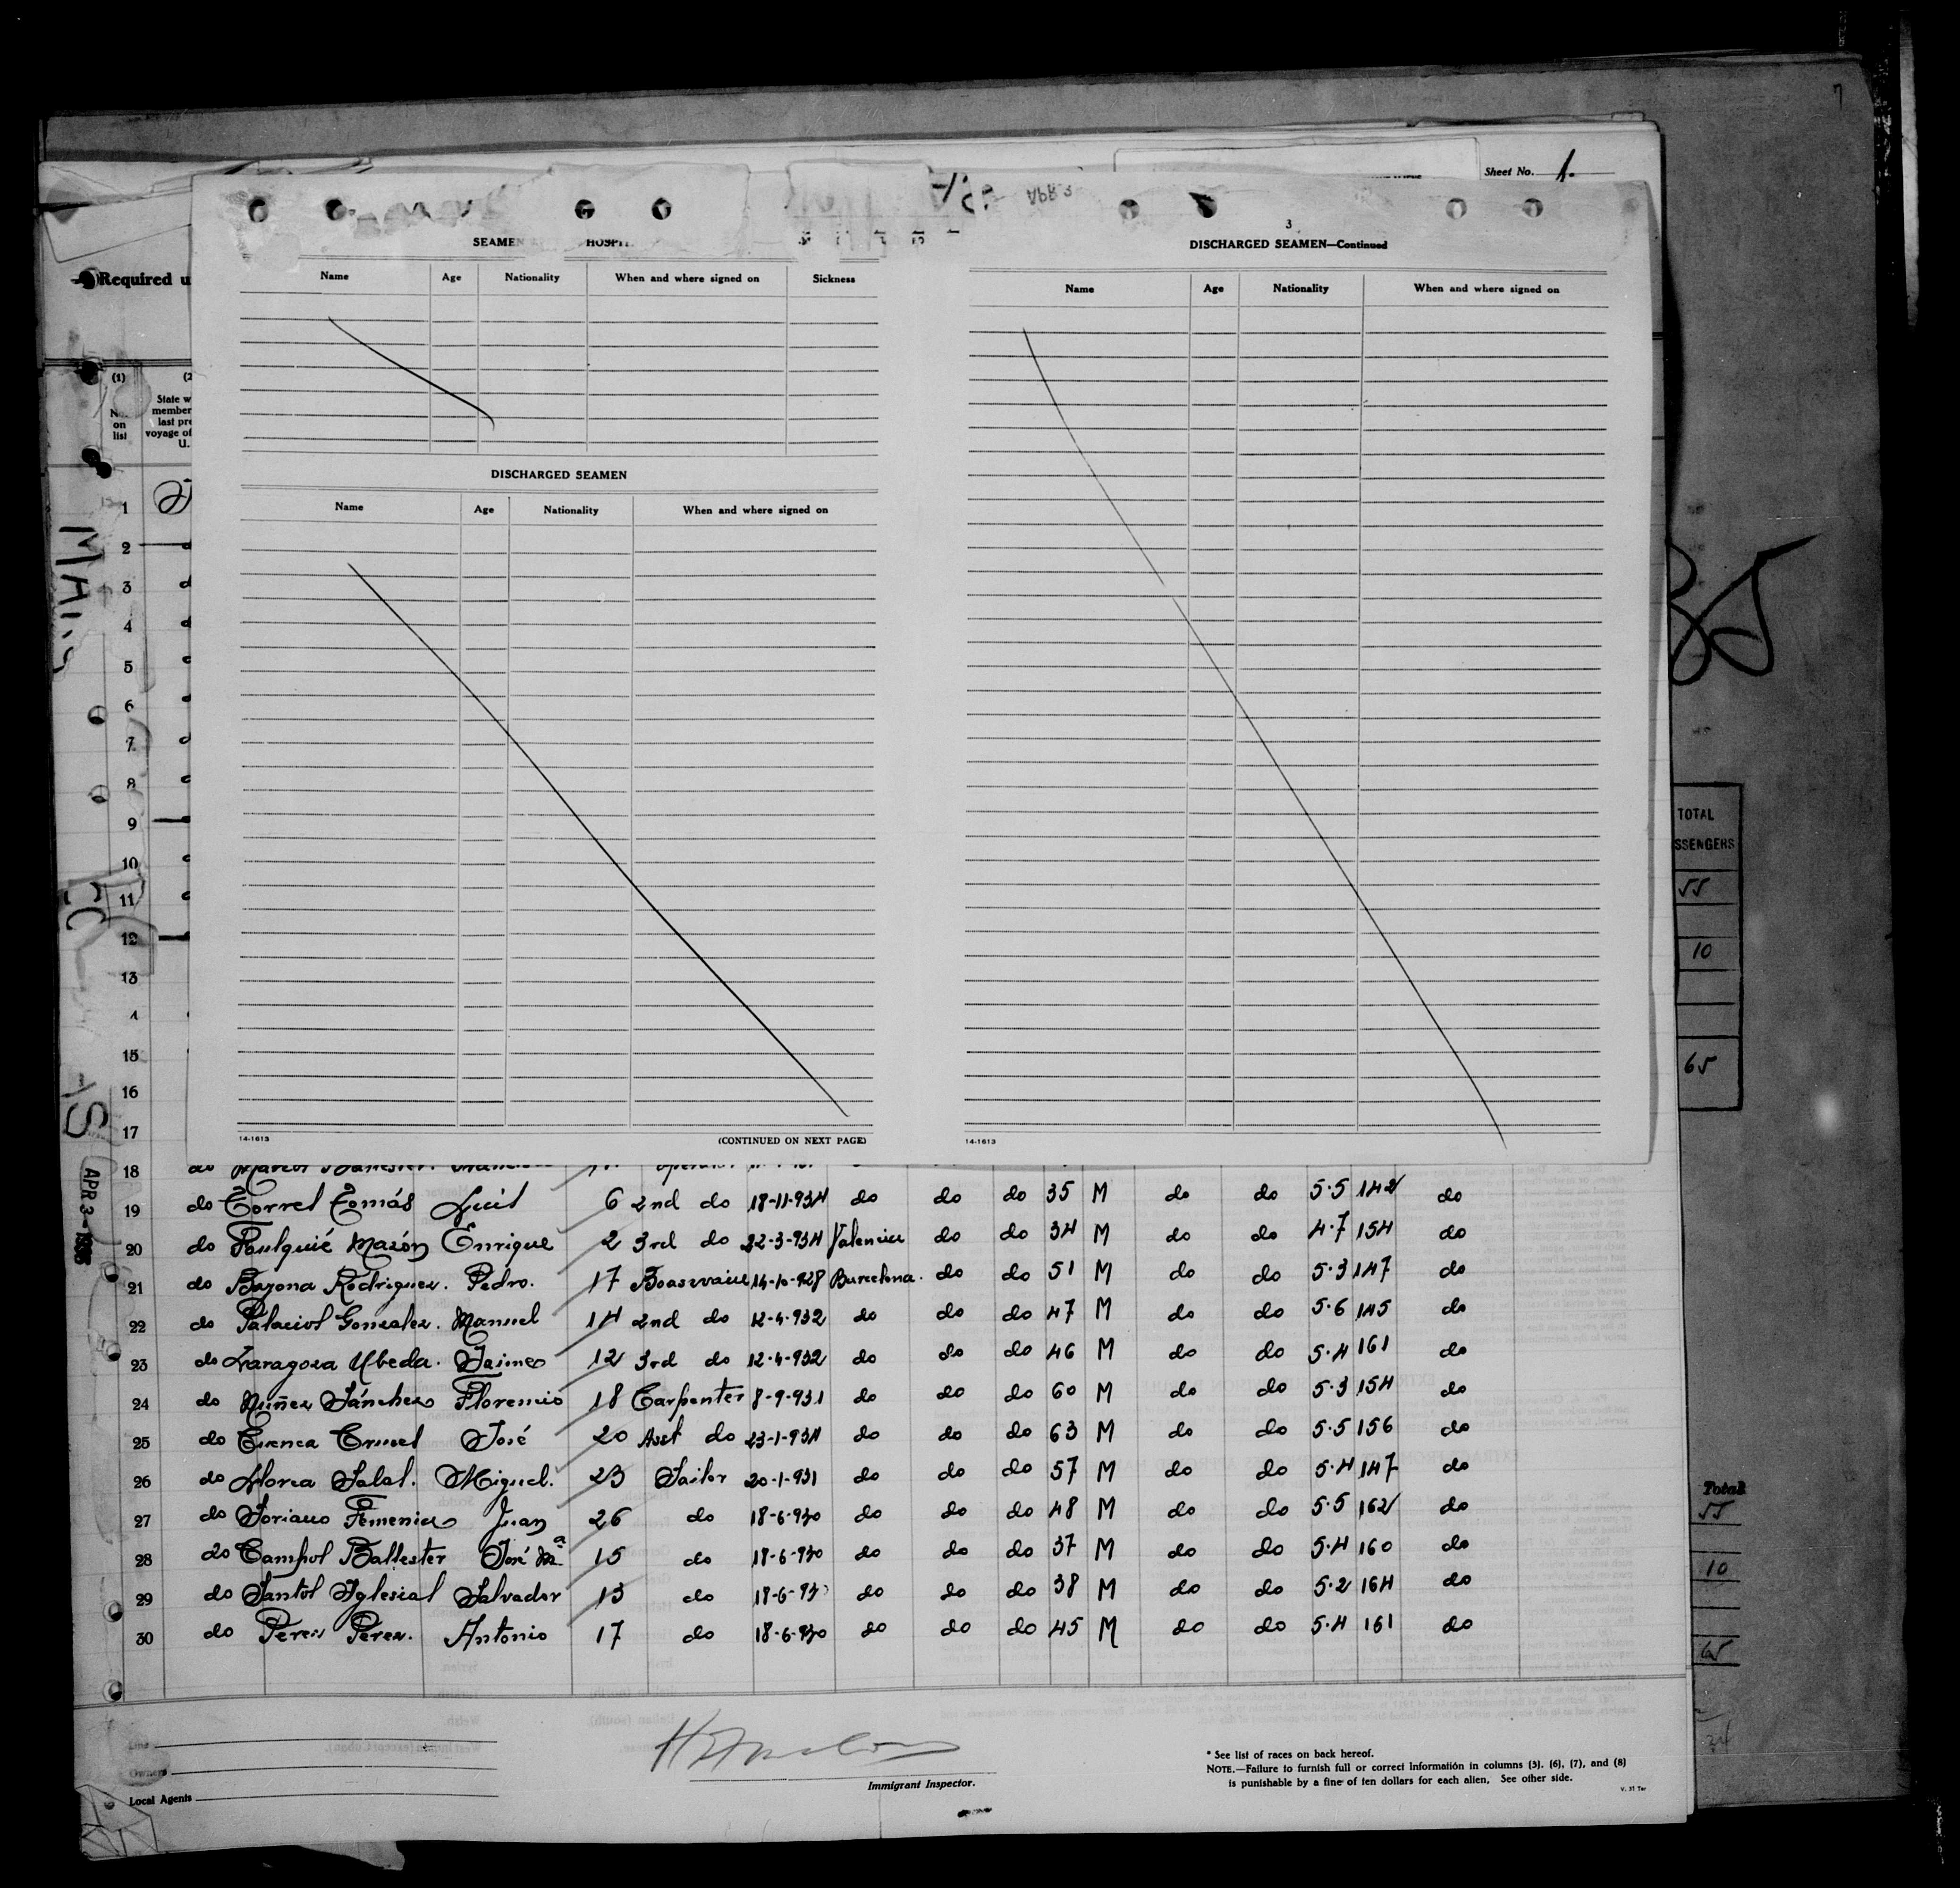 Sheet No. 1.
APR 3
3
SEAMEN HOSPI
DISCHARGED SEAMEN—Continued
Required u
Name Age Nationality When and where signed on Sickness
Name Age Nationality When and where signed on
(1) (2
No. on list
State w
member
last pre
voyage of
U.
DISCHARGED SEAMEN
Name Age Nationality When and where signed on
1
2
3
4
5
6
7
8
9
10
11
12
13
15
16
17
35
TOTAL
SSENGERS
55
10
65
14-1613 (CONTINUED ON NEXT PAGE)
14-1613
APR 3-1935
18 do
19 do Torrel Tomás Luis 6 2nd do 18-11-934 do do do 35 M do do 5.5 142 do
20 do Faulquié Mazón Enrique 2 3rd do 22-3-934 Valencia do do 34 M do do 4.7 154 do
21 do Bayona Rodriguez. Pedro. 17 Boaswain 14-10-928 Barcelona. do do 51 M do do 5.3 147 do
22 do Palaciol Gonzalez. Manuel 14 2nd do 12-4-932 do do do 47 M do do 5.6 145 do
23 do Zaragoza Ubeda. Jaime 12 3rd do 12-4-932 do do do 46 M do do 5.4 161 do
24 do Nuñez Sánchez Florencio 18 Carpenter 8-9-931 do do do 60 M do do 5.3 154 do
25 do Cuenca José 20 Asst do 23-1-934 do do do 63 M do do 5.5 156 do
26 do Llorca Salal. Miguel. 23 Sailor 20-1-931 do do do 57 M do do 5.4 147 do
27 do Soriano Femenia Juan 26 do 18-6-930 do do do 48 M do do 5.5 162 do
28 do Campol Ballester José Mª 15 do 18-6-930 do do do 37 M do do 5.4 160 do
29 do Santol Iglesial Salvador 13 do 18-6-930 do do do 38 M do do 5.2 164 do
30 do Perez Perez. Antonio 17 do 18-6-930 do do do 45 M do do 5.4 161 do
Total
55
10
65
Line
Owners
Local Agents
Immigrant Inspector.
* See list of races on back hereof.
NOTE.—Failure to furnish full or correct information in columns (3), (6), (7), and (8)
is punishable by a fine of ten dollars for each alien. See other side.